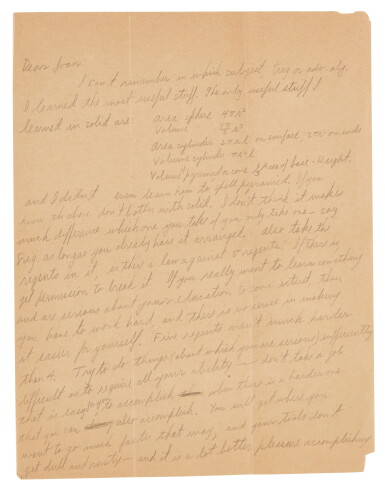 Dear Joan:
I can't remember in which subject, trig or adv. alg.
I learned the most useful stuff. The only useful stuff I
learned in solid are: area sphere 4πR²
Volume " 4/3πR³
area cylinder 2πRL on surface, 2πR² on ends
Volume cylinder πR²L
Volume pyramid or cone ⅓ area of base · height.
and I didn't even learn how to spell pyramid. If you
know the above don't bother with solid. I don't think it makes
much difference which one you take if you only take one — say
trig as long as you already have it arranged. Also take the
regents in it, is there a law against 5 regents? If there is
get permission to break it. If you really want to learn something
and are serious about your education to some extent then
you have to work hard, and there is no sense in making
it easier for yourself. Five regents aren't much harder
than 4. Try to do things (about which you are serious) sufficiently
difficult as to require all your ability — don't take a job
that is easy to accomplish when there is a harder one
that you can also accomplish. You will get where you
want to go much faster that way, and your tools don't
get dull and rusty — and it is a lot better pleasure accomplishing